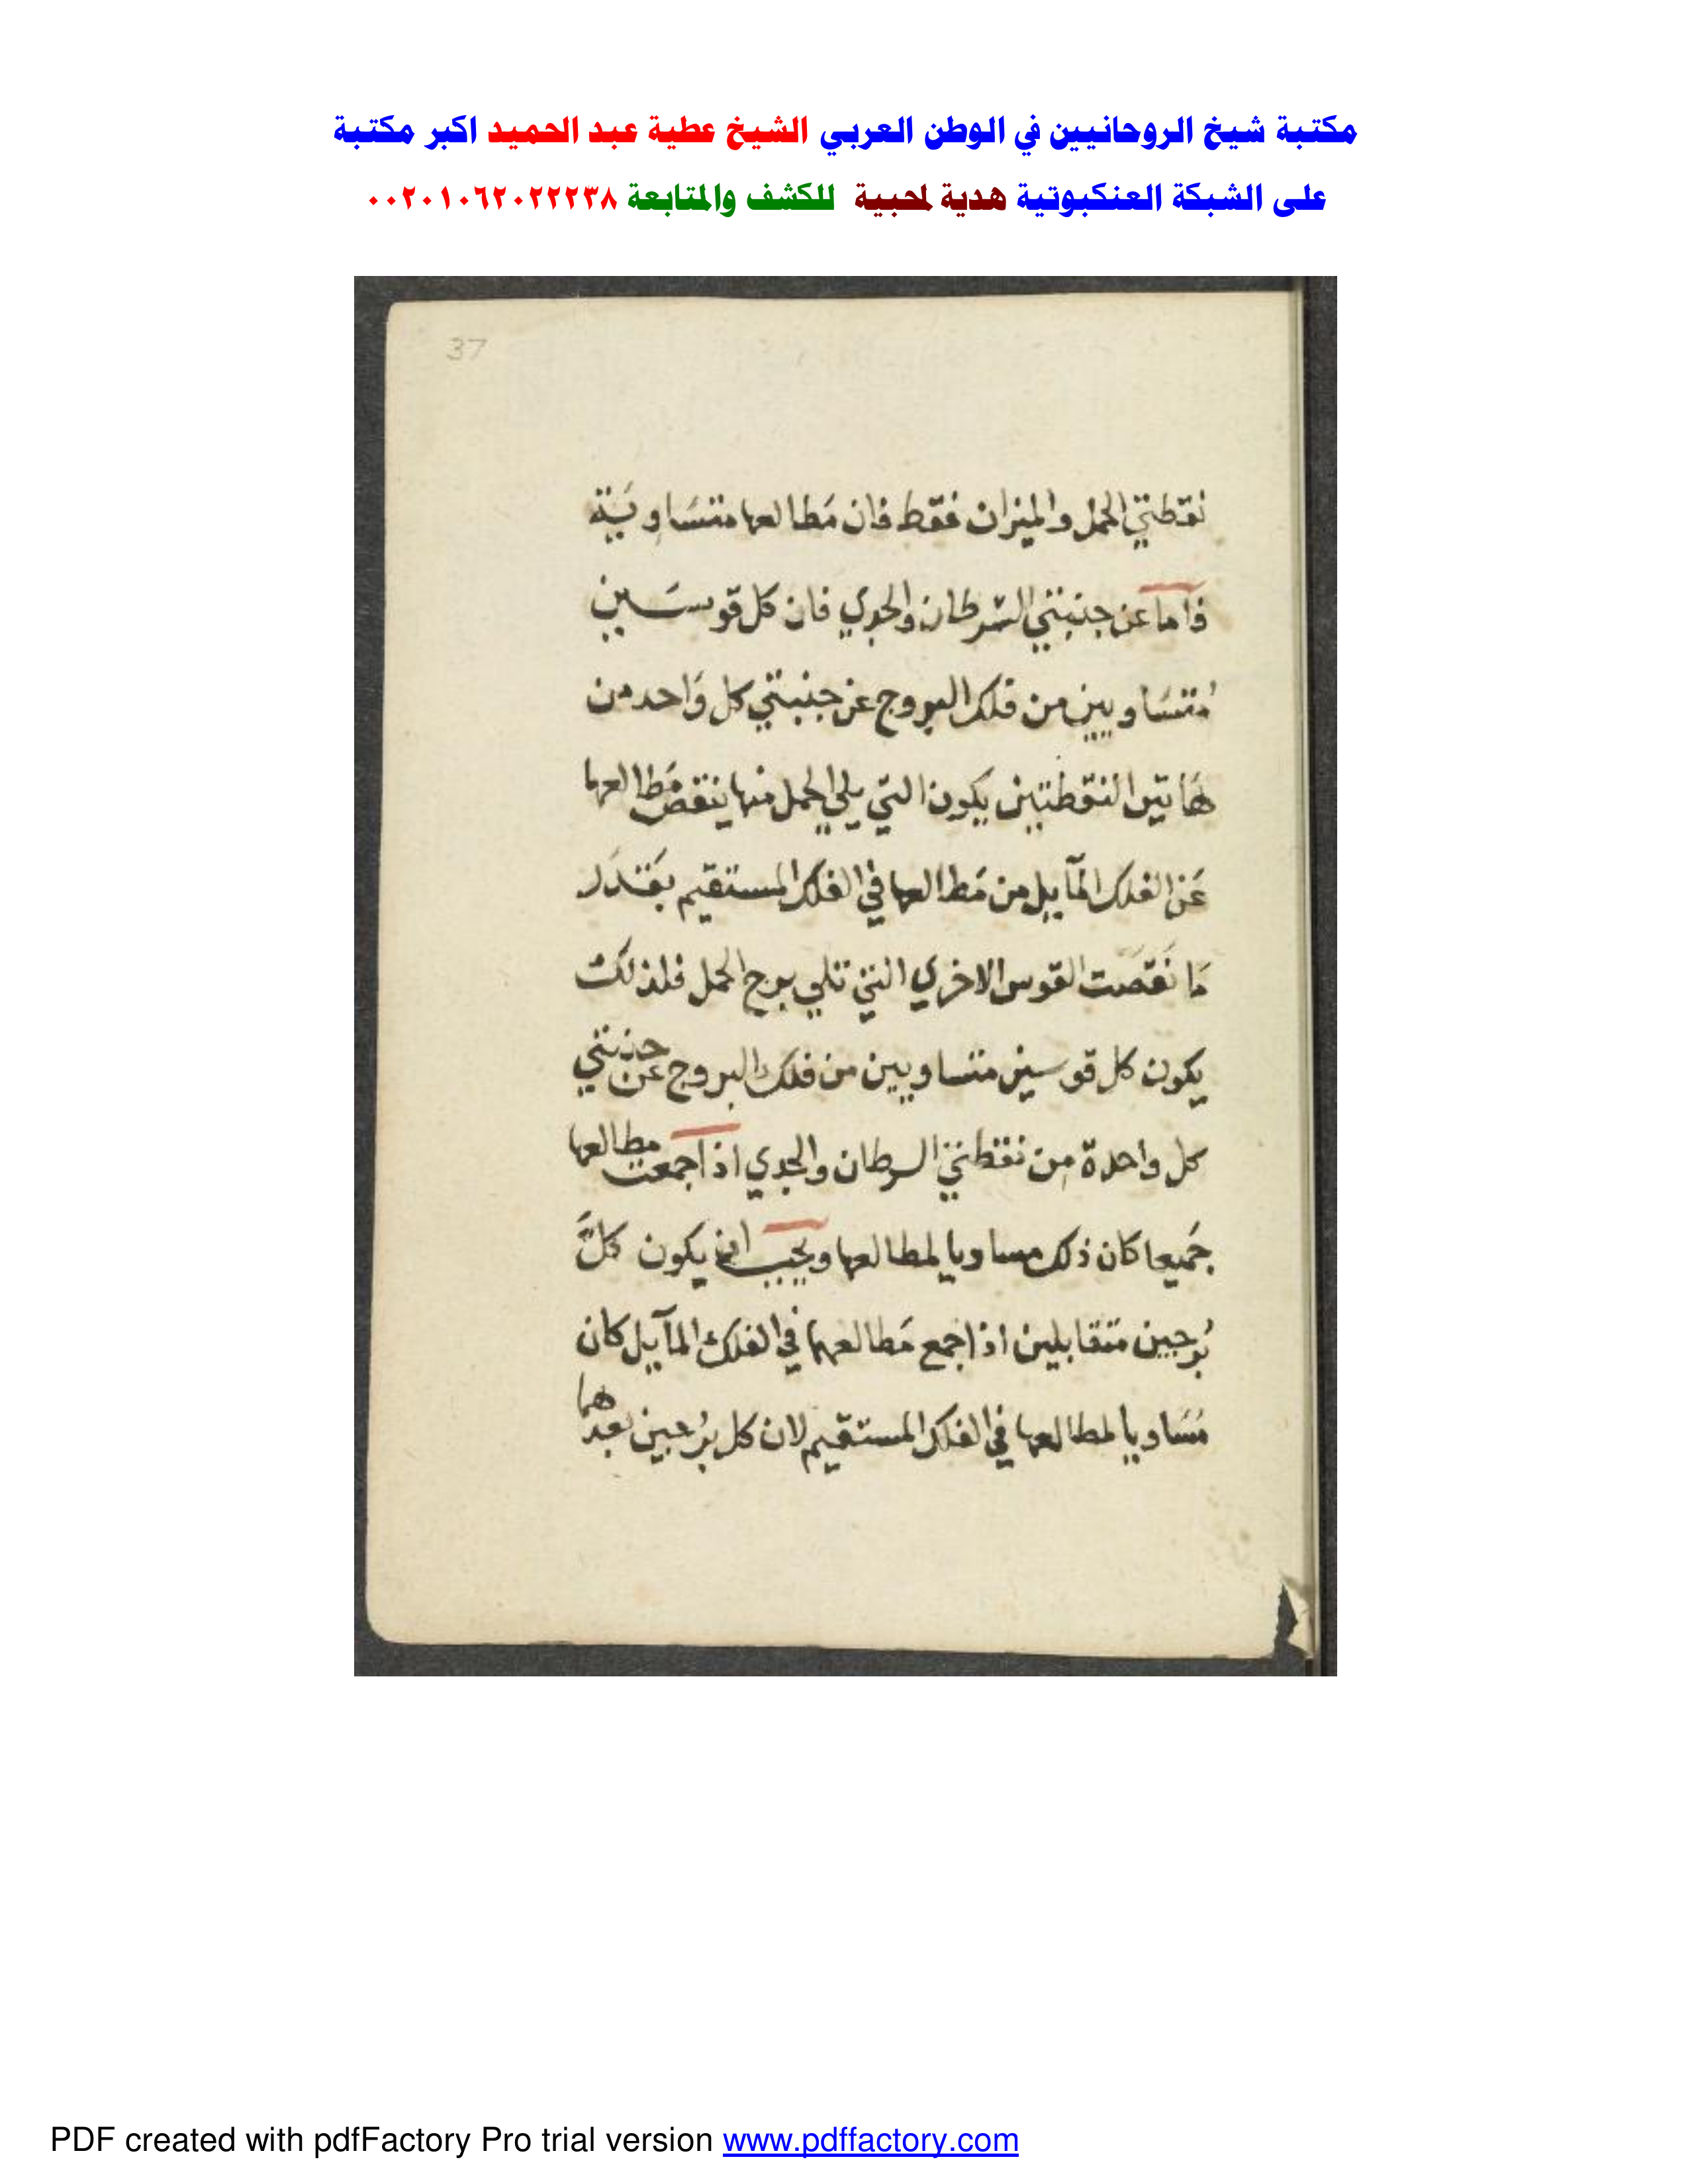 مكتبة شيخ الروحانيين في الوطن العربي الشيخ عطية عبد الحميد اكبر مكتبة
على الشبكة العنكبوتية هدية لمحبية للكشف والمتابعة ٠٠٢٠١٠٦٢٠٢٢٢٣٨
37
نقطتي الحمل والميزان فقط فان مَطالعها متسَاويَة
فاما عن جنبتي السرطان والجدي فان كل قوسَين
مُتسَاويين من فلك البروج عن جنبتي كل وَاحد من
هَاتين النقطتين يكون التي يلي الحمل منها ينقص مَطالعها
عَن الفلك المآيل من مَطالعها في الفلك المستقيم بقَدَر
مَا نَقصَت القوس الاخري التي تلي برج الحمل فلذلك
يكون كل قوسين متساويين من فلك البروج عن جنبتي
كل واحدة من نقطتي السرطان والجدي اذا جمعت مطالعها
جَميعا كان ذلك مساويا لمطالعها ويجب ان يكون كلَّ
بُرجين متقابلين اذا جمع مَطالعهما في الفلك المآيل كان
مُسَاويا لمطالعها في الفلك المستقيم لان كل بُرجين بعدهما
PDF created with pdfFactory Pro trial version www.pdffactory.com